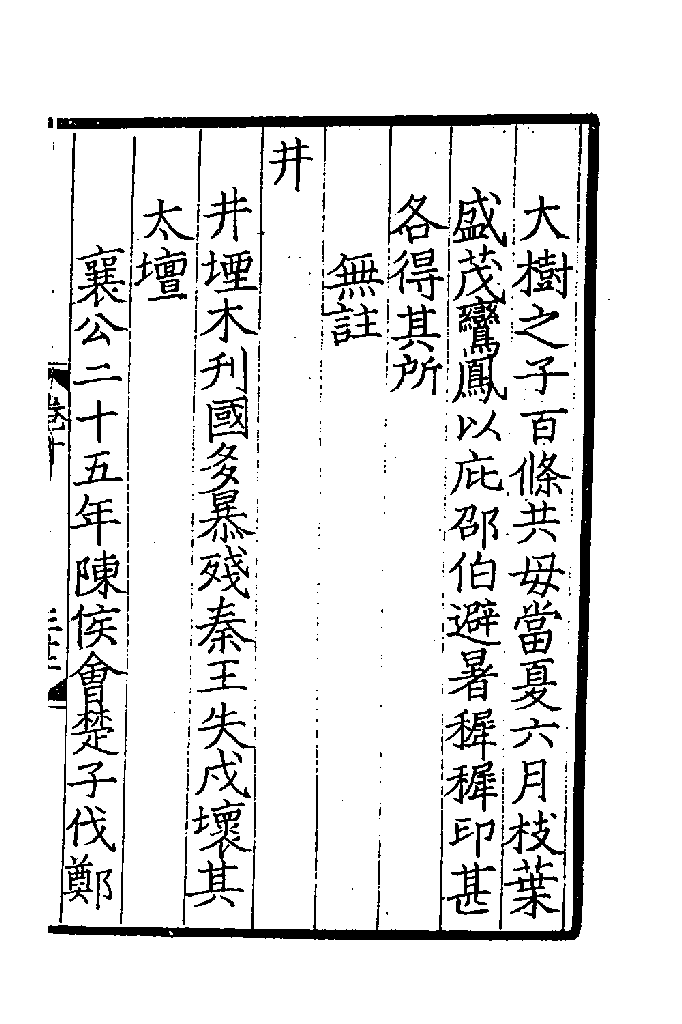 大樹之子百條共毋當夏六月枝葉
盛茂鸞鳳以庇邵伯避暑稺稺卬甚
各得其所
無註
井
井堙木刋國多暴殘秦王失戍壞其
太壇
襄公二十五年陳侯會楚子伐鄭